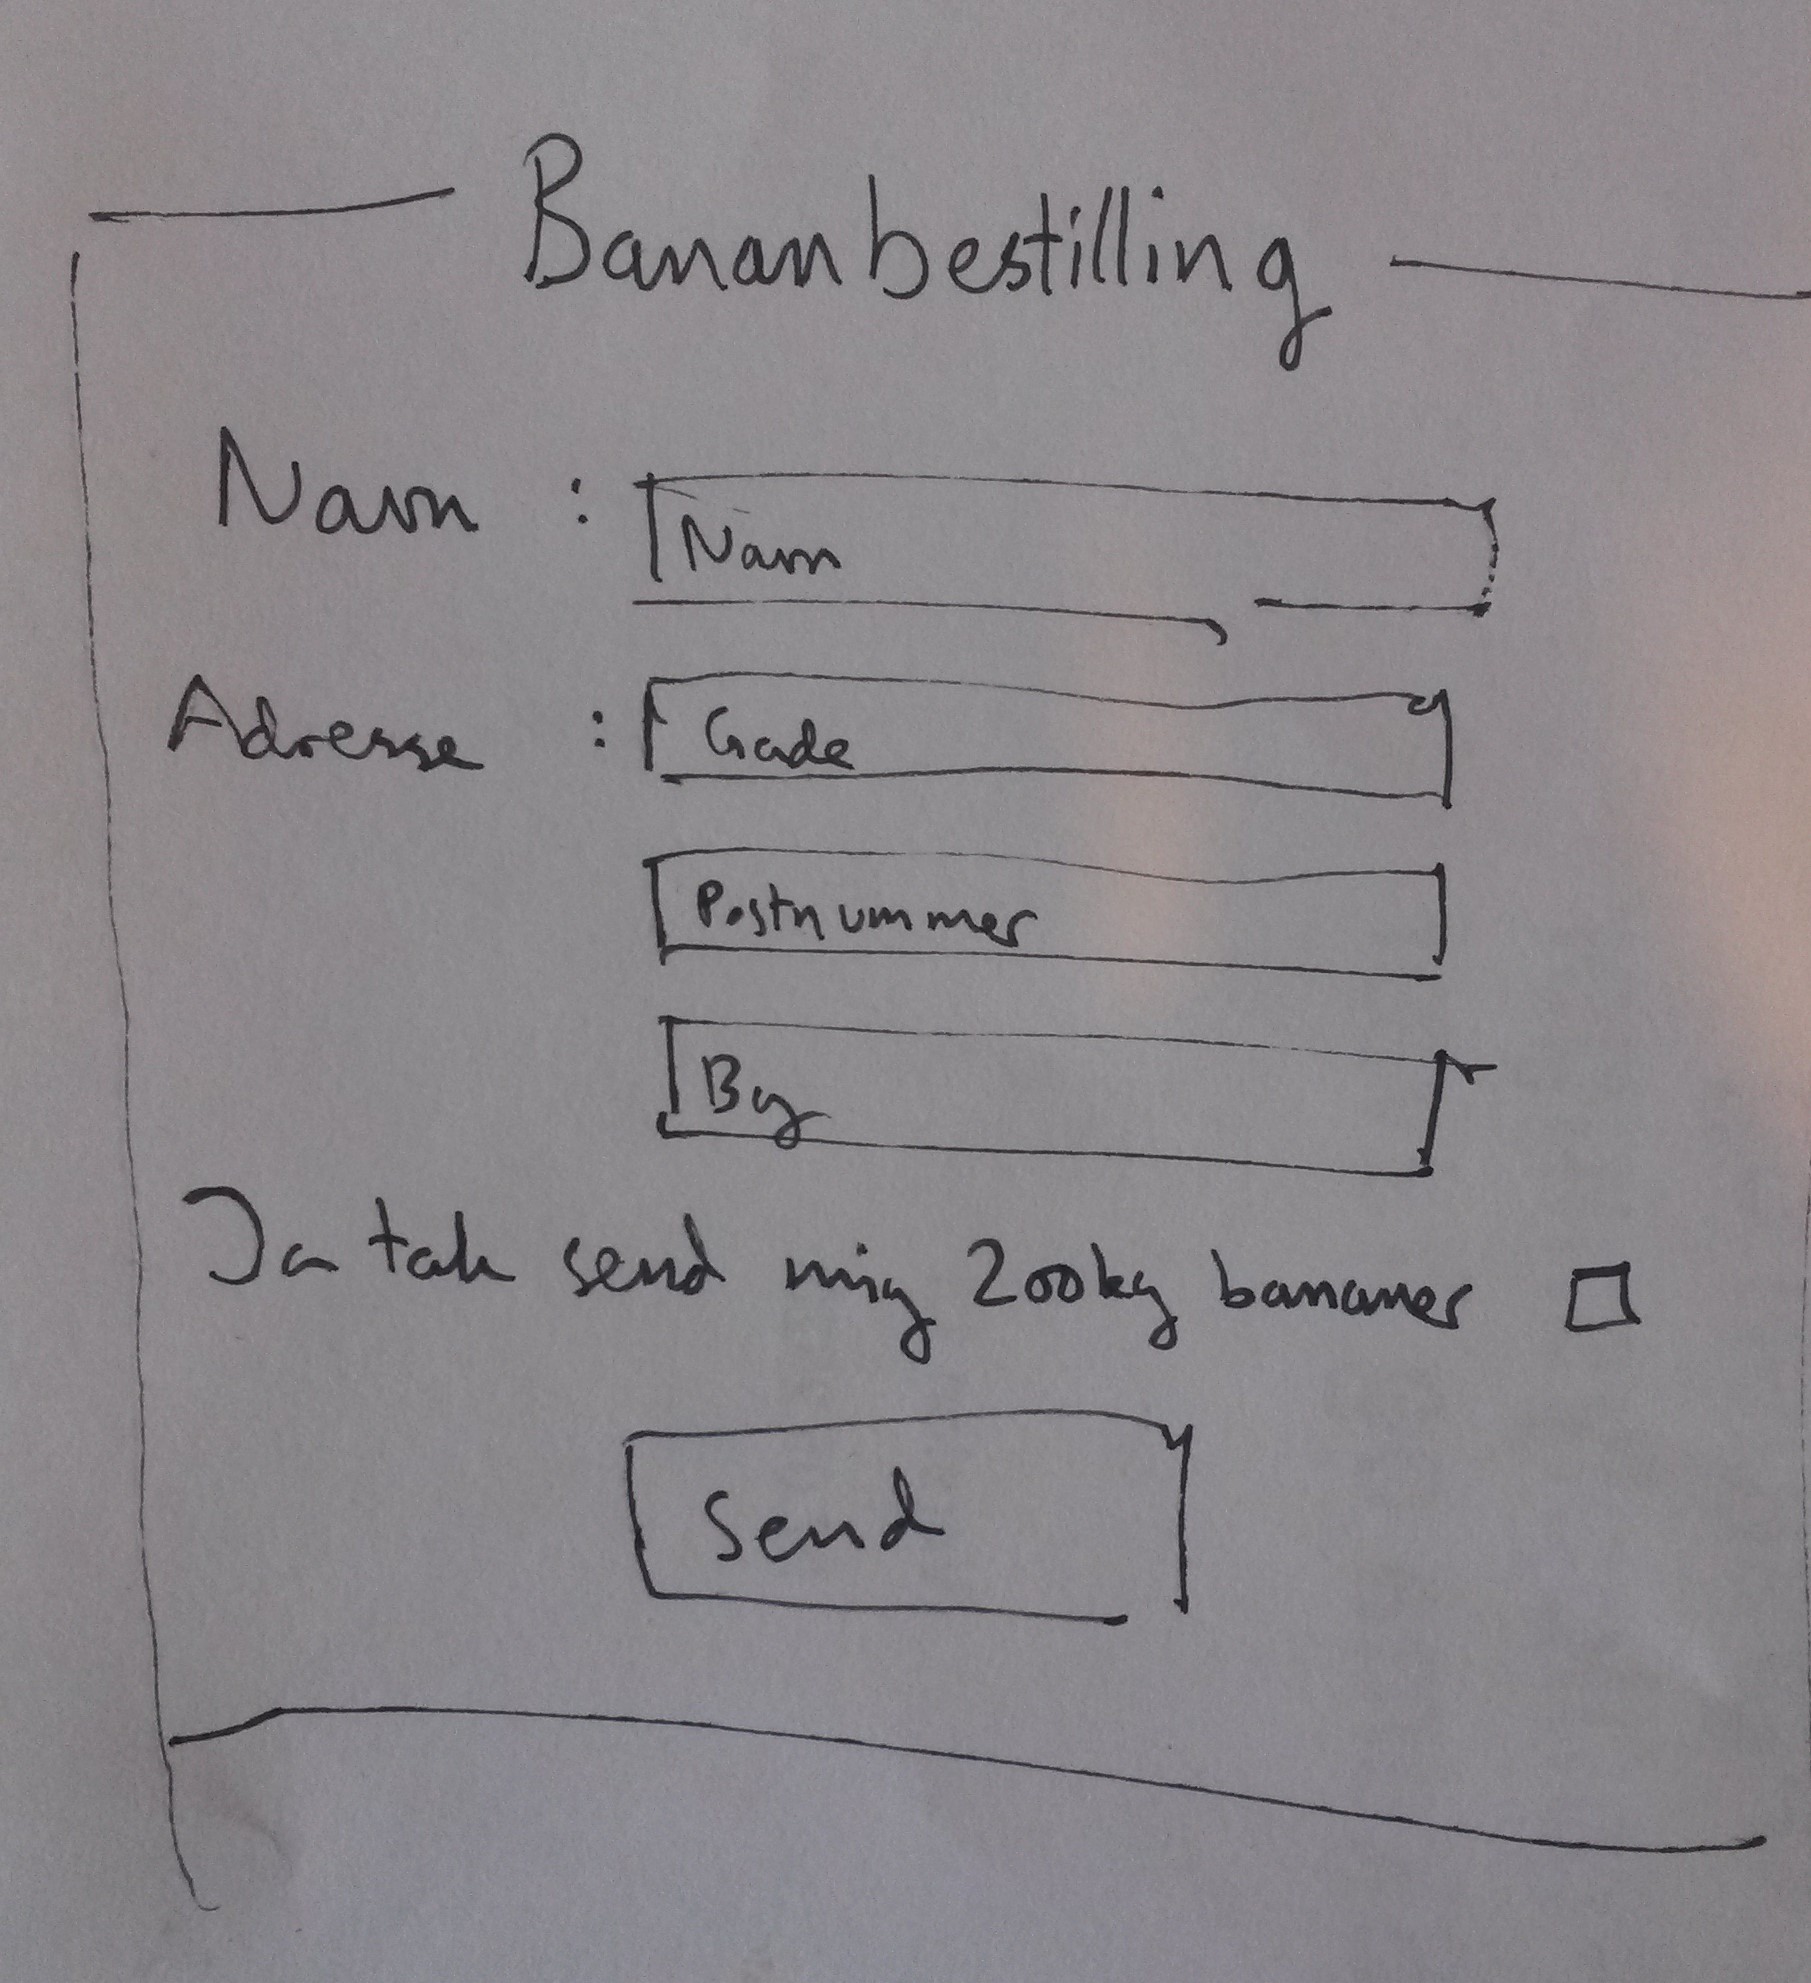 Bananbestilling
Navn : Navn
Adresse : Gade
Postnummer
By
Ja tak send mig 200kg bananer
Send